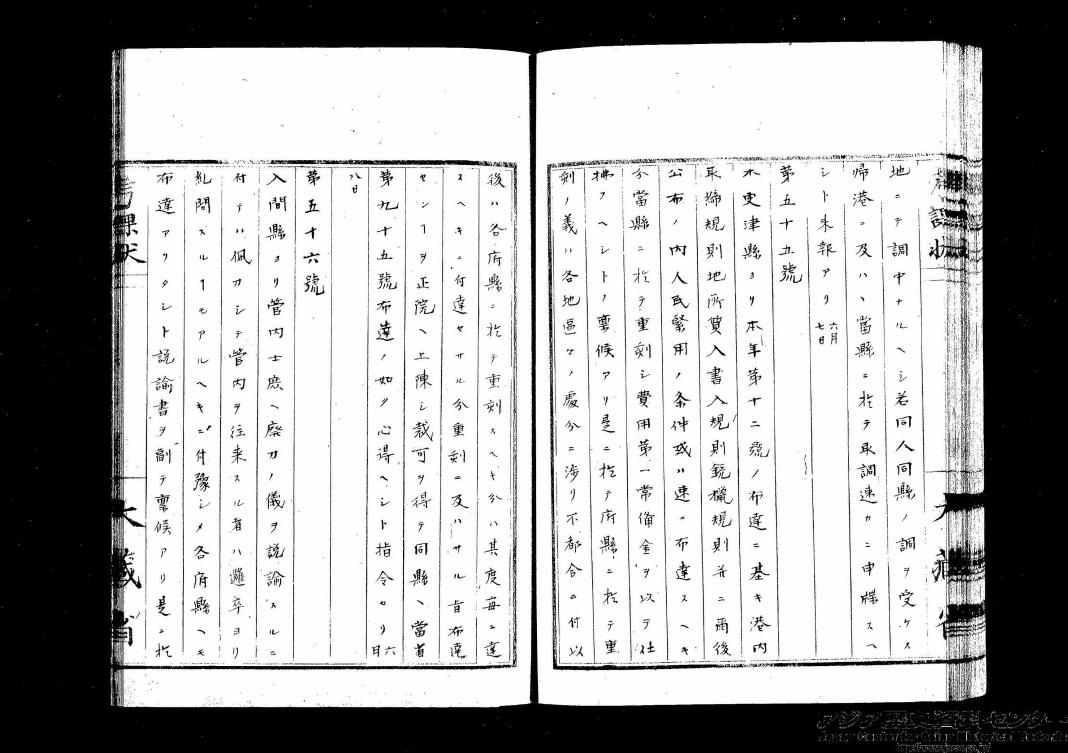 地ニテ調中ナルヘシ若同人同縣ノ調ヲ受ケス
帰港ニ及ハヽ當縣ニ於テ取調速カニ申牒スヘ
シト来報アリ 六月七日
第五十五號
木更津縣ヨリ本年第十二號ノ布達ニ基キ港内
取締規則地所質入書入規則銃獵規則并ニ雨後
公布ノ内人民緊用ノ条件或ハ速ニ布達スヘキ
分當縣ニ於テ重刻シ費用第一常備金ヲ以テ仕
拂フヘシトノ稟候アリ是ニ於テ府縣ニ於テ重
刻ノ義ハ各地區々ノ處分ニ渉リ不都合ニ付以
後ハ各府縣ニ於テ重刻スヘキ分ハ其度毎ニ達
スヘキニ付達セサル分重刻ニ及ハサル旨布達
センヿヲ正院ヘ上陳シ裁可ヲ得テ同縣ヘ當省
第九十五號布達ノ如ク心得ヘシト指令セリ 六月
八日
第五十六號
入間縣ヨリ管内士庶ヘ廢刀ノ儀ヲ説諭スルニ
付テハ佩刀シテ管内ヲ往来スル者ハ邏卒ヨリ
糺問スルヿモアルヘキニ付豫シメ各府縣ヘモ
布達アリタシト説諭書ヲ副テ稟候アリ是ニ於
大藏省
大藏省
アジア歴史資料センター
Japan Center for Asian Historical Records